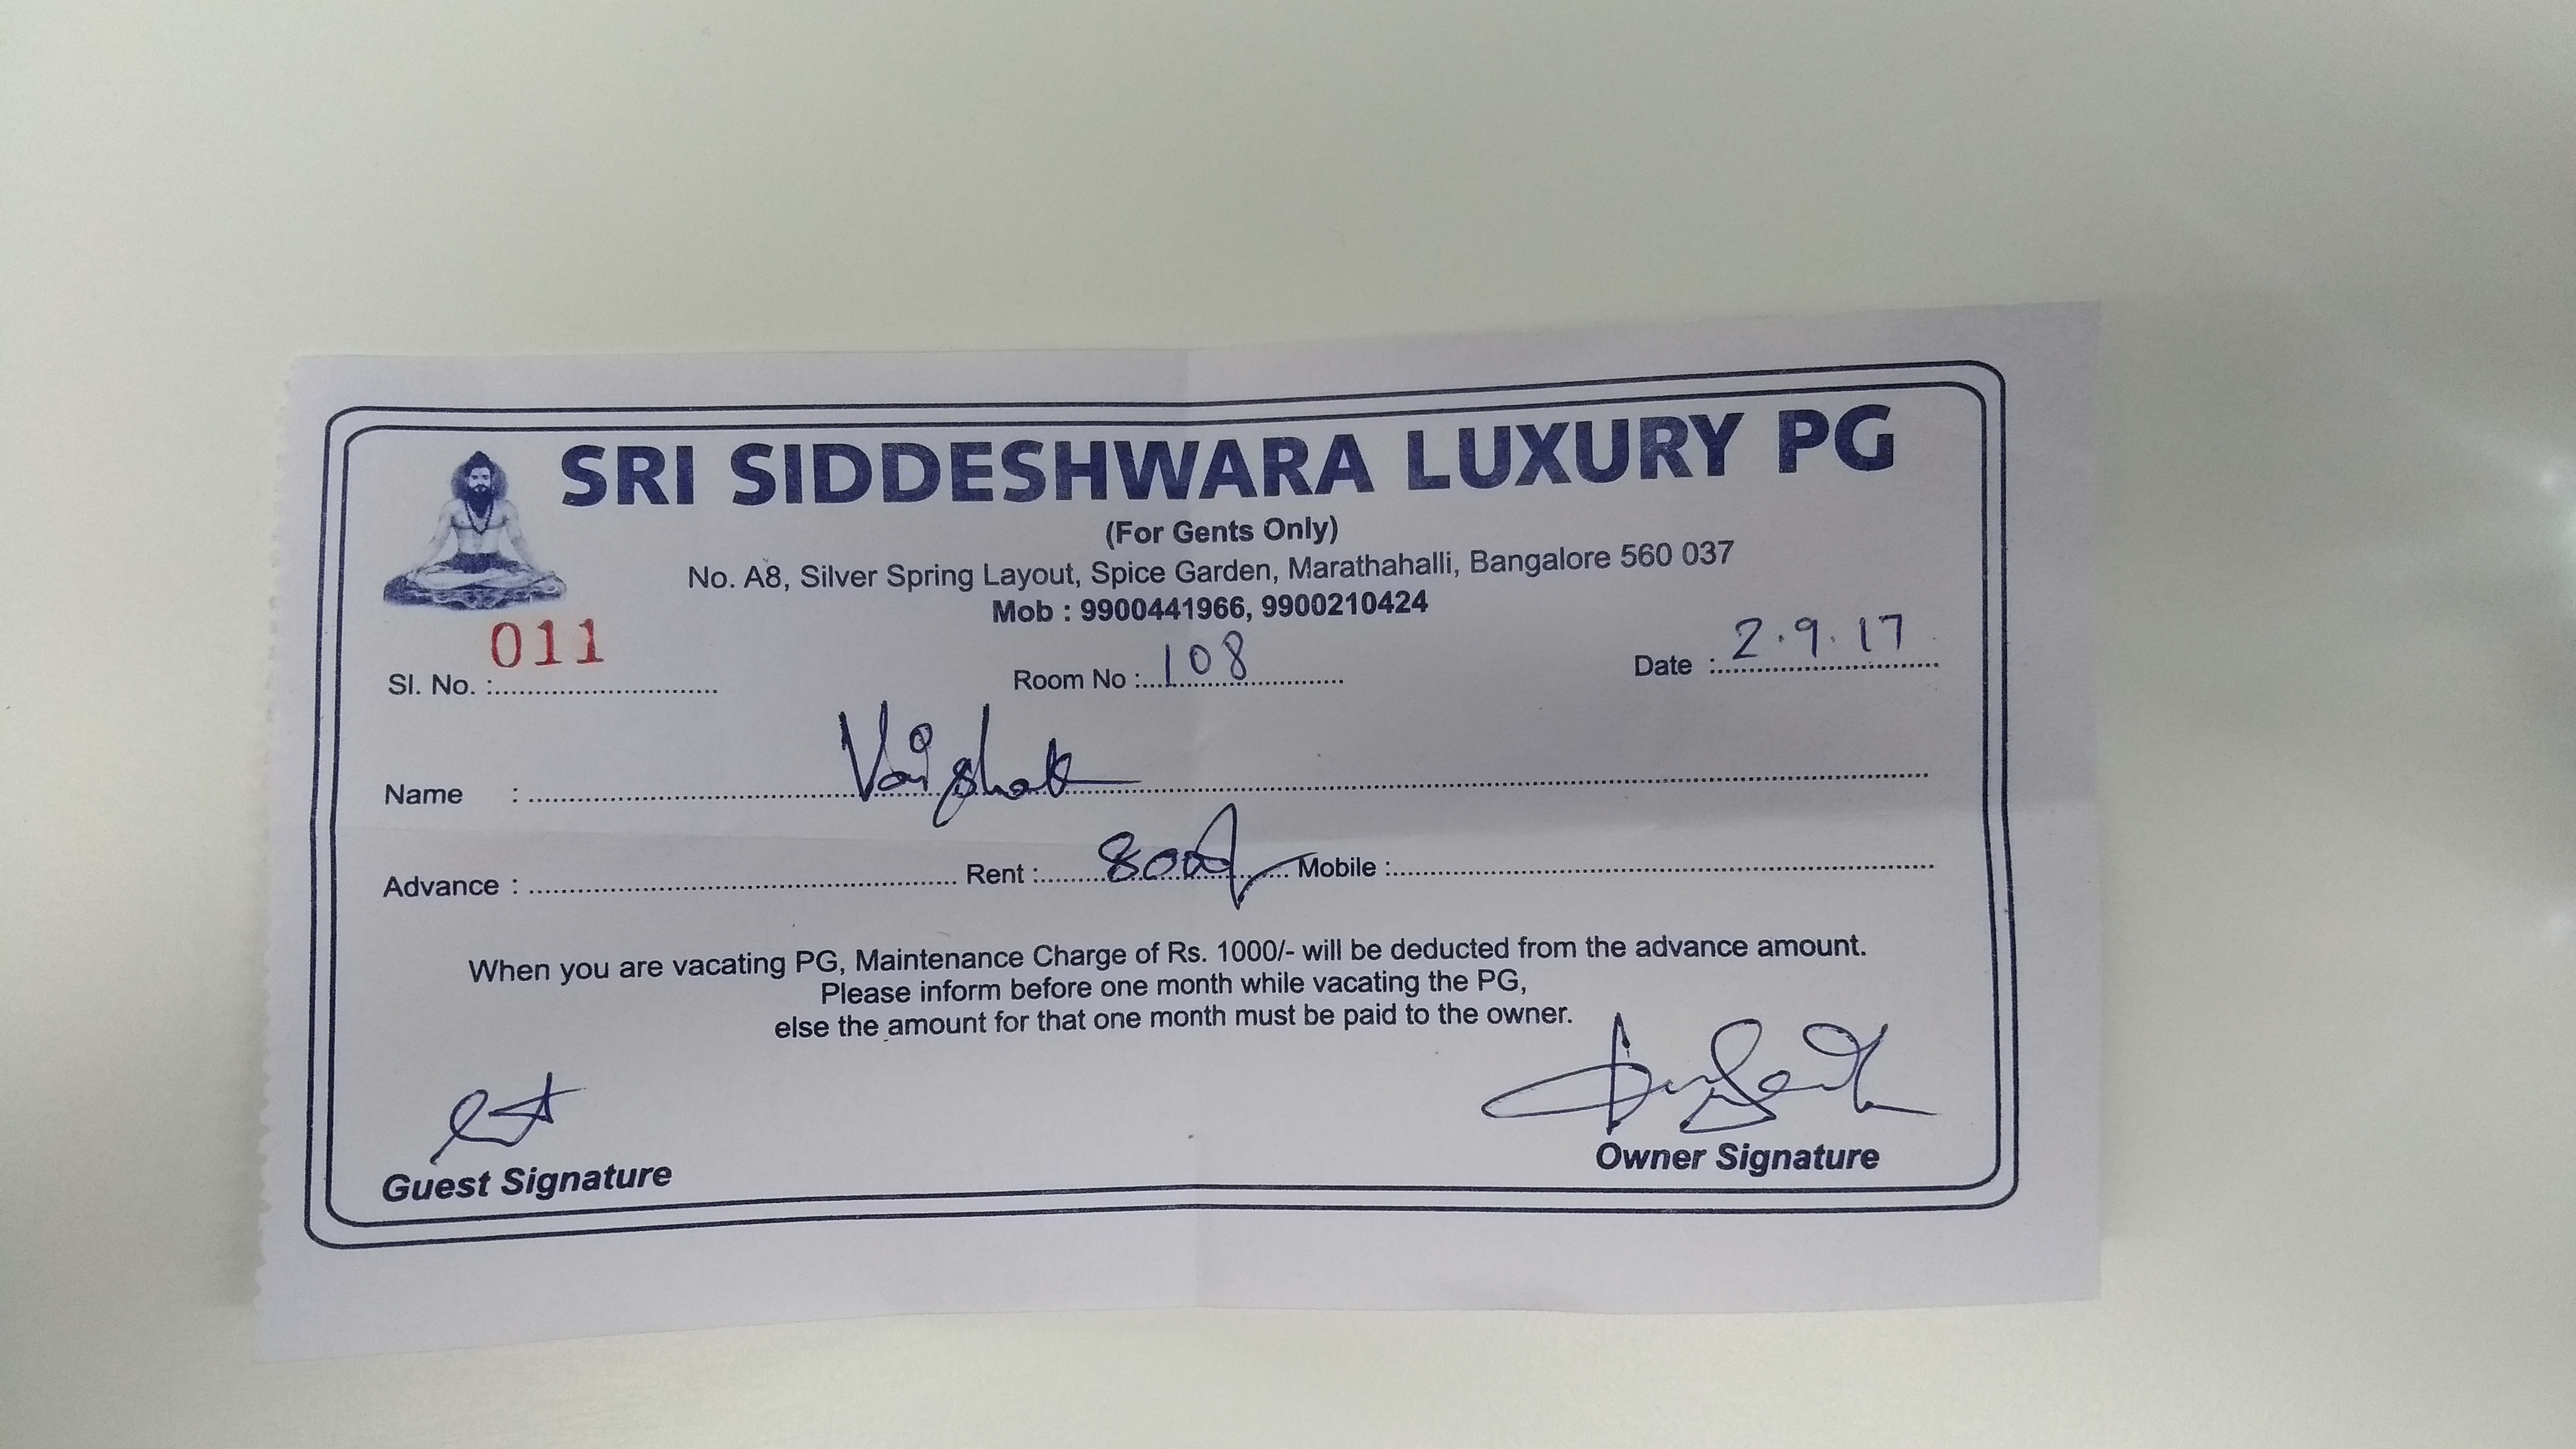 SRI SIDDESHWARA LUXURY PG
(For Gents Only)
No. A8, Silver Spring Layout, Spice Garden, Marathahalli, Bangalore 560 037
Mob : 9900441966, 9900210424
Sl. No. : 011 Room No : 108 Date : 2.9.17
Name : Vaishak
Advance : Rent : 8000/- Mobile :
When you are vacating PG, Maintenance Charge of Rs. 1000/- will be deducted from the advance amount.
Please inform before one month while vacating the PG,
else the amount for that one month must be paid to the owner.
Guest Signature Owner Signature